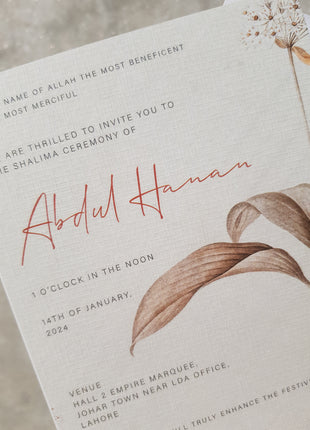 NAME OF ALLAH THE MOST BENEFICENT
MOST MERCIFUL
ARE THRILLED TO INVITE YOU TO
THE SHALIMA CEREMONY OF
Abdul Hanan
1 O'CLOCK IN THE NOON
14TH OF JANUARY,
2024
VENUE
HALL 2 EMPIRE MARQUEE,
JOHAR TOWN NEAR LDA OFFICE,
LAHORE
TRULY ENHANCE THE FESTIV